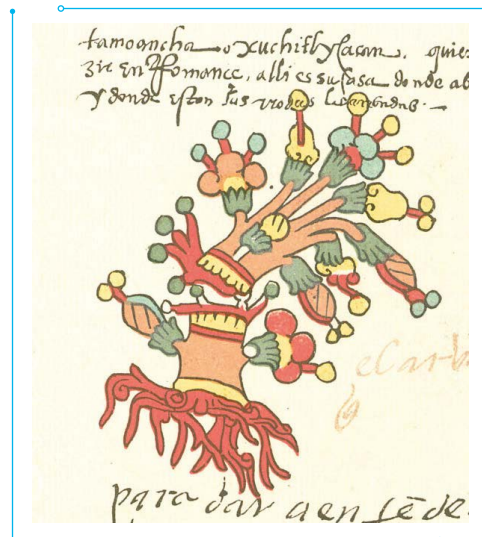 tamoancha o xuchitlycacan. quie
zir en Romance, alli es su casa donde ab
y donde eston sus rosas
el arb
para dar a en